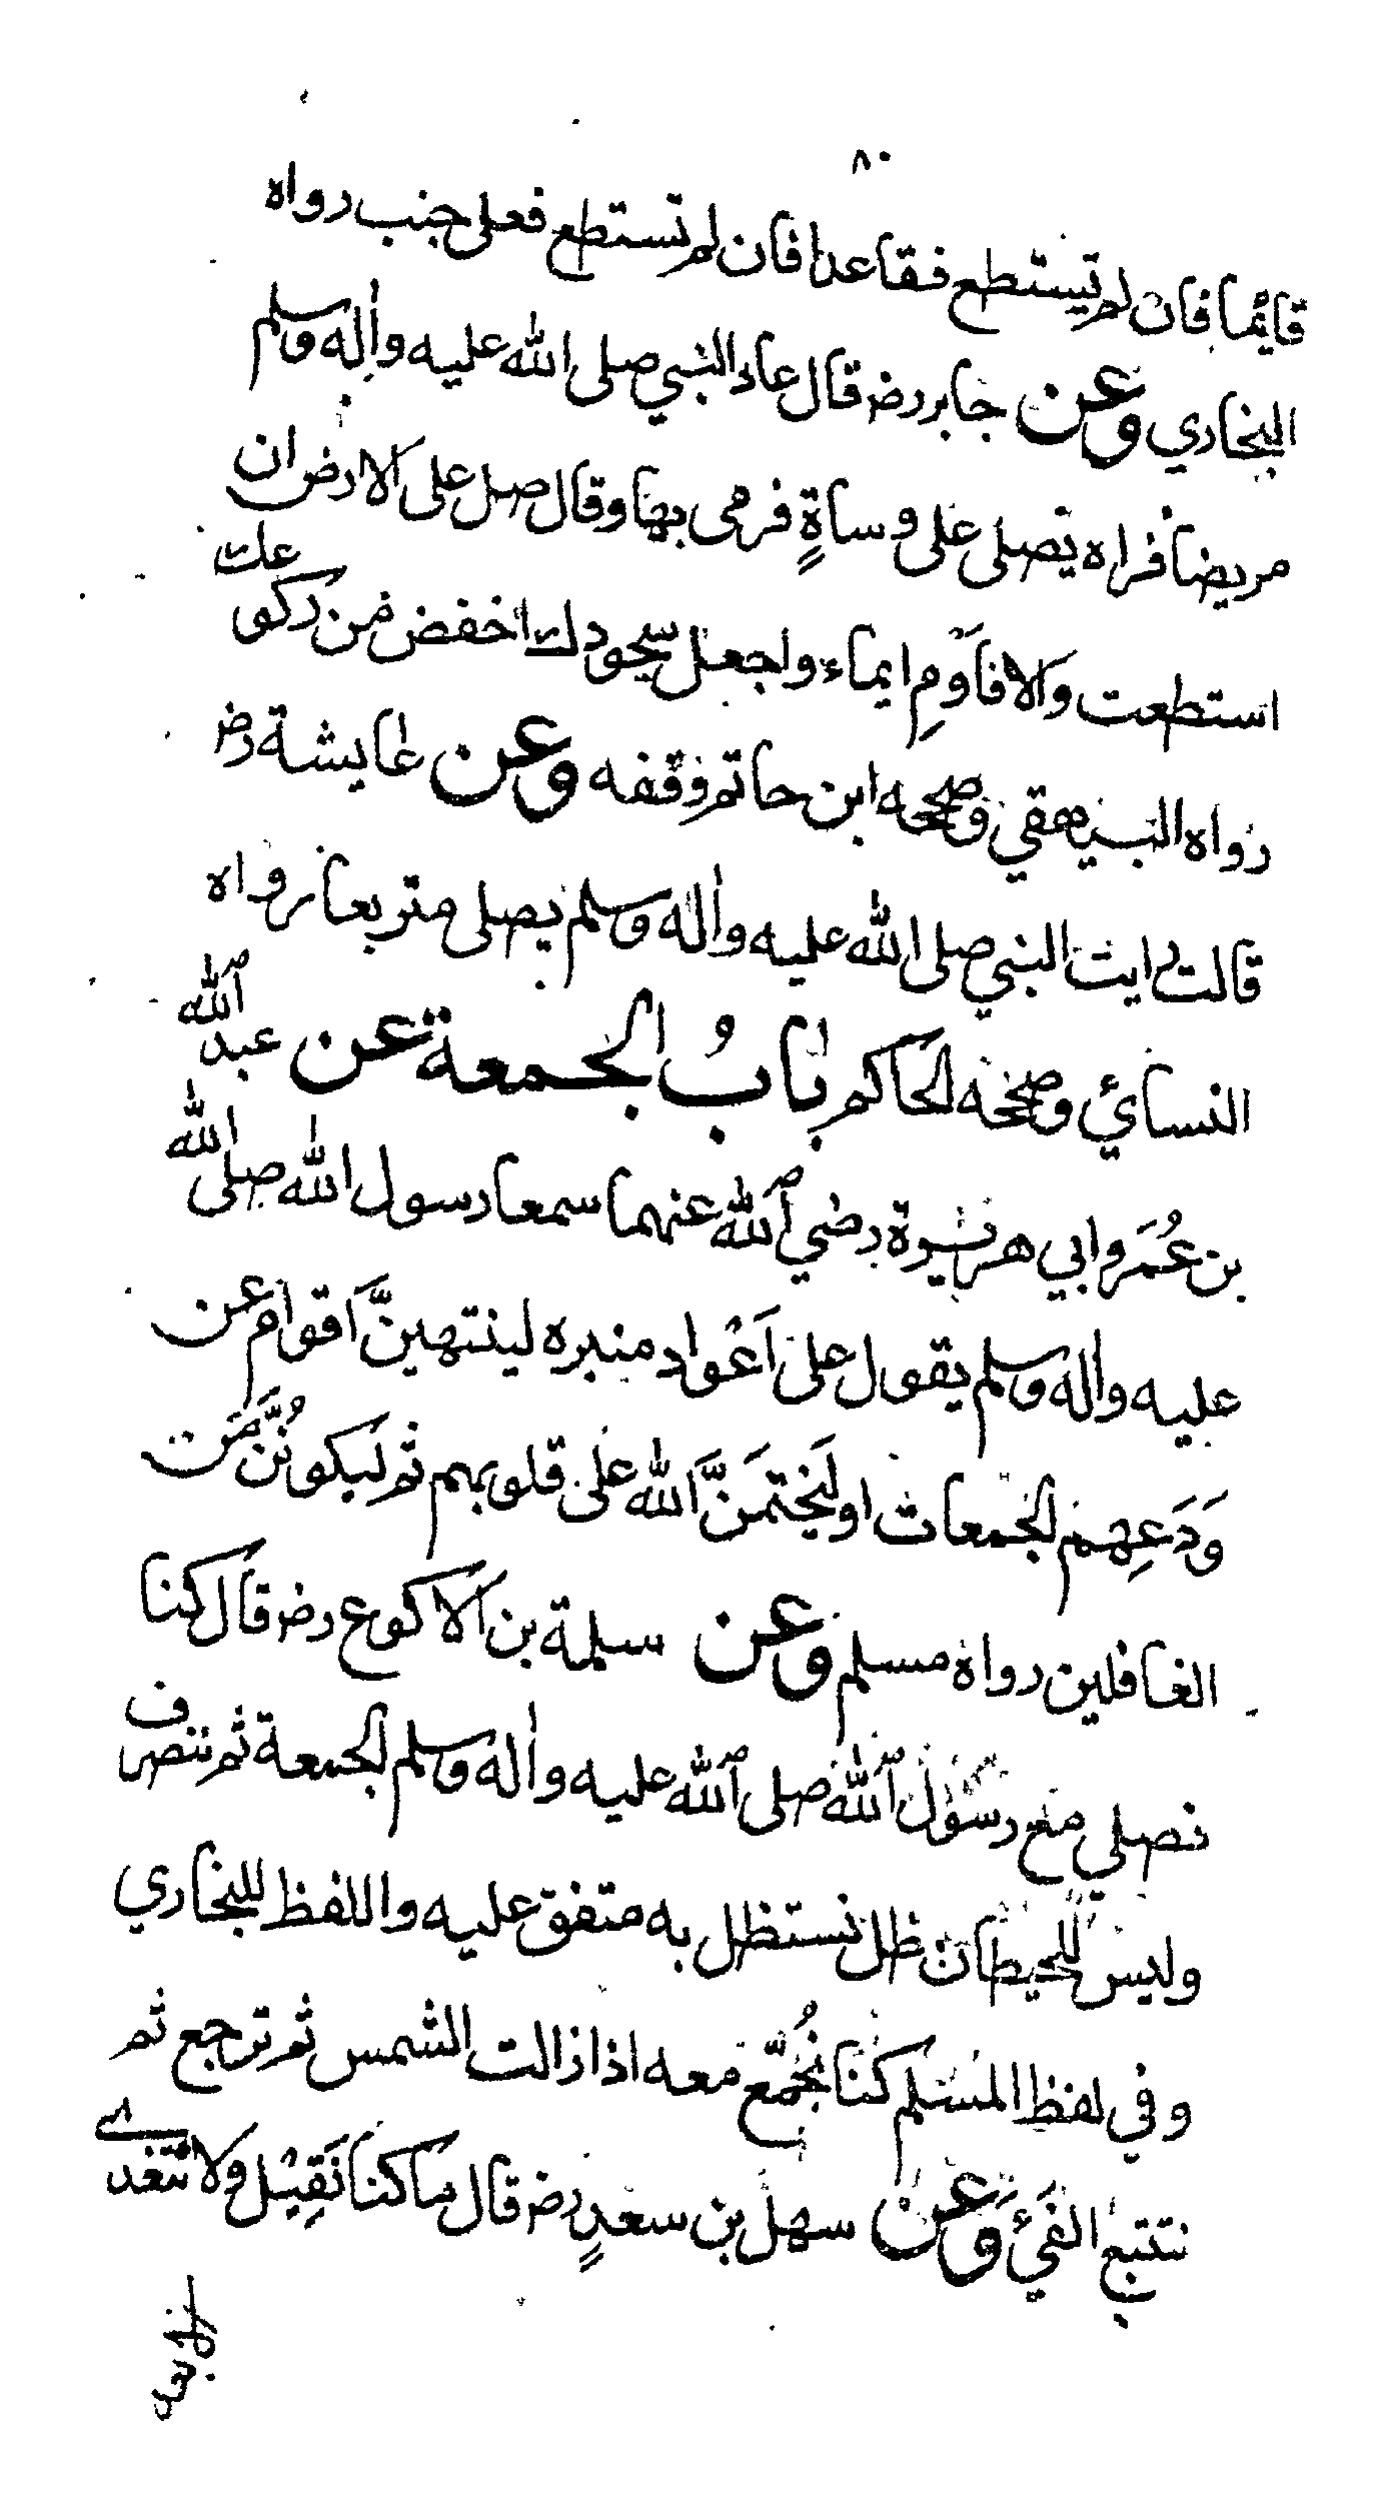 ٨٠
قايما فان لم تستطع فقاعدا فان لم تستطع فعلى جنب رواه
البخاري وعن جابر رضـ قال عاد النبي صلى الله عليه واله وسلم
مريضا فراه يصلى على وساةٍ فرمى بها وقال صل على الارض ان
استطعت والا فاَوْمِ ايماء واجعل سجودك اخفض من ركوعك
رواه البيهقي وصححه ابن حاتم وقفه وعن عايشة رضـ
قالت رايت النبي صلى الله عليه واله وسلم يصلى متربعا رواه
النسائي وصححه الحاكم بابُ الجمعة عن عبد الله
بن عُمَر وابي هريرة رضي الله عنهما سمعا رسول الله صلى الله
عليه واله وسلم يقول على اَعْواد منبره لينتهينَّ اَقوام عن
وَدَعِهم الجمعات او لَيختمَنَّ الله على قلوبهم ثم ليكونُنَّ مَن
الغافلين رواه مسلم وعن سلمة بن الاكوع رضـ قال كنا
نصلي مع رسول الله صلى الله عليه واله وسلم الجمعة ثم ننصرف
وليس للحيطان ظل نستظل به متفق عليه واللفظ للبخاري
وفي لفظ المسلم كنا نُجمّع معه اذا زالت الشمس ثم نرجع ثم
نتتبع الفئَ وعن سهل بن سعدٍ رضـ قال ما كنا نَقِيْل ولا نتغدى